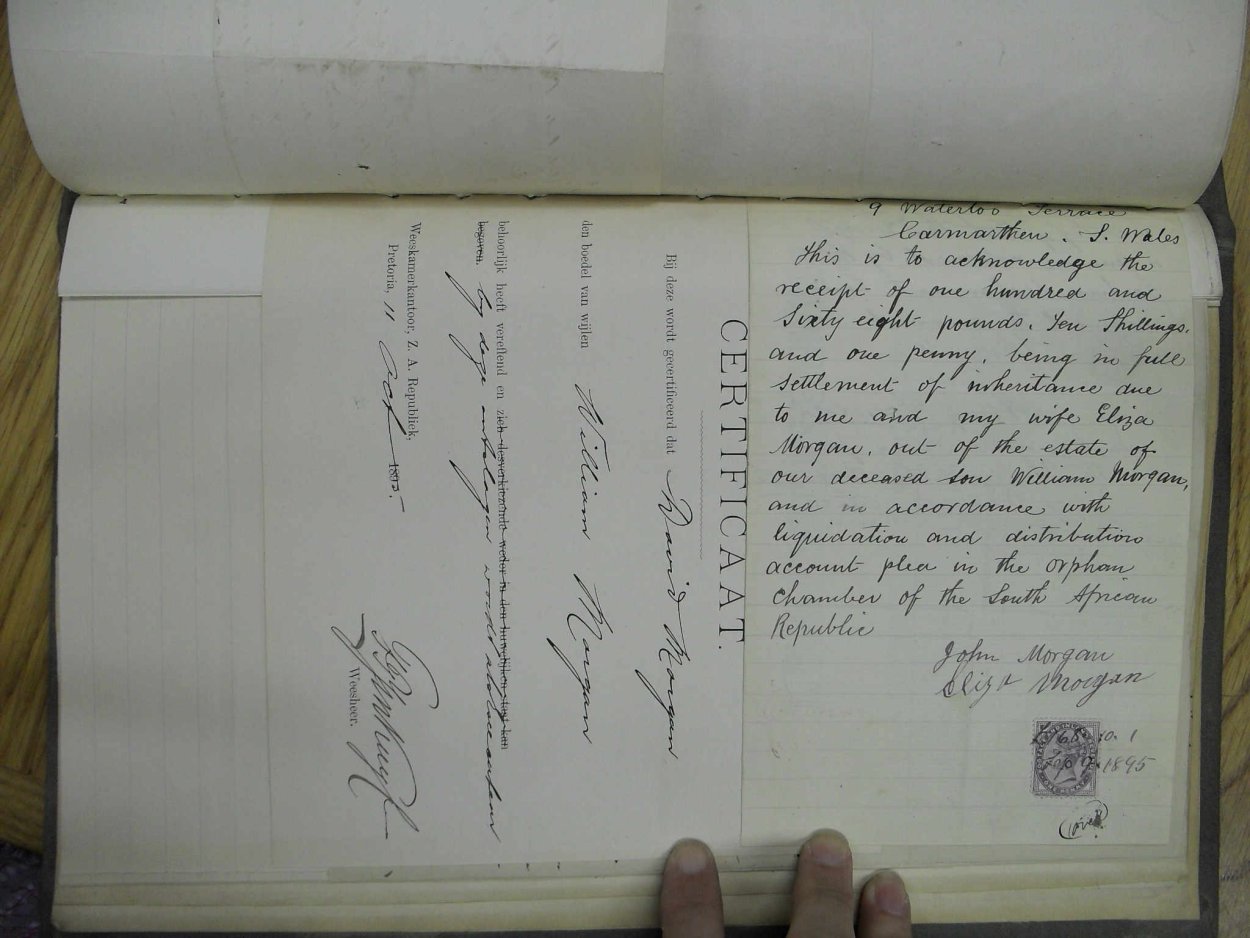 9 Waterloo Terrace
Carmarthen. S. Wales
This is to acknowledge the
receipt of one hundred and
Sixty eight pounds. Ten Shillings.
and one penny, being in full
settlement of inheritance due
to me and my wife Eliza
Morgan, out of the estate of
our deceased son William Morgan,
and in accordance with
liquidation and distribution
account plea in the orphan
Chamber of the South African
Republic
John Morgan
Eliza Morgan
£168. 10. 1
1895
(over)
CERTIFICAAT.
Bij deze wordt gecertificeerd dat David Morgan
den boedel van wijlen William Morgan
behoorlijk heeft vereffend en zich desverkiezende weder in den huwelijken staat kan
begeven. by deze ontslagen wordt als
Weeskamerkantoor, Z. A. Republiek,
Pretoria, 11 Oct 1895.
Weesheer.